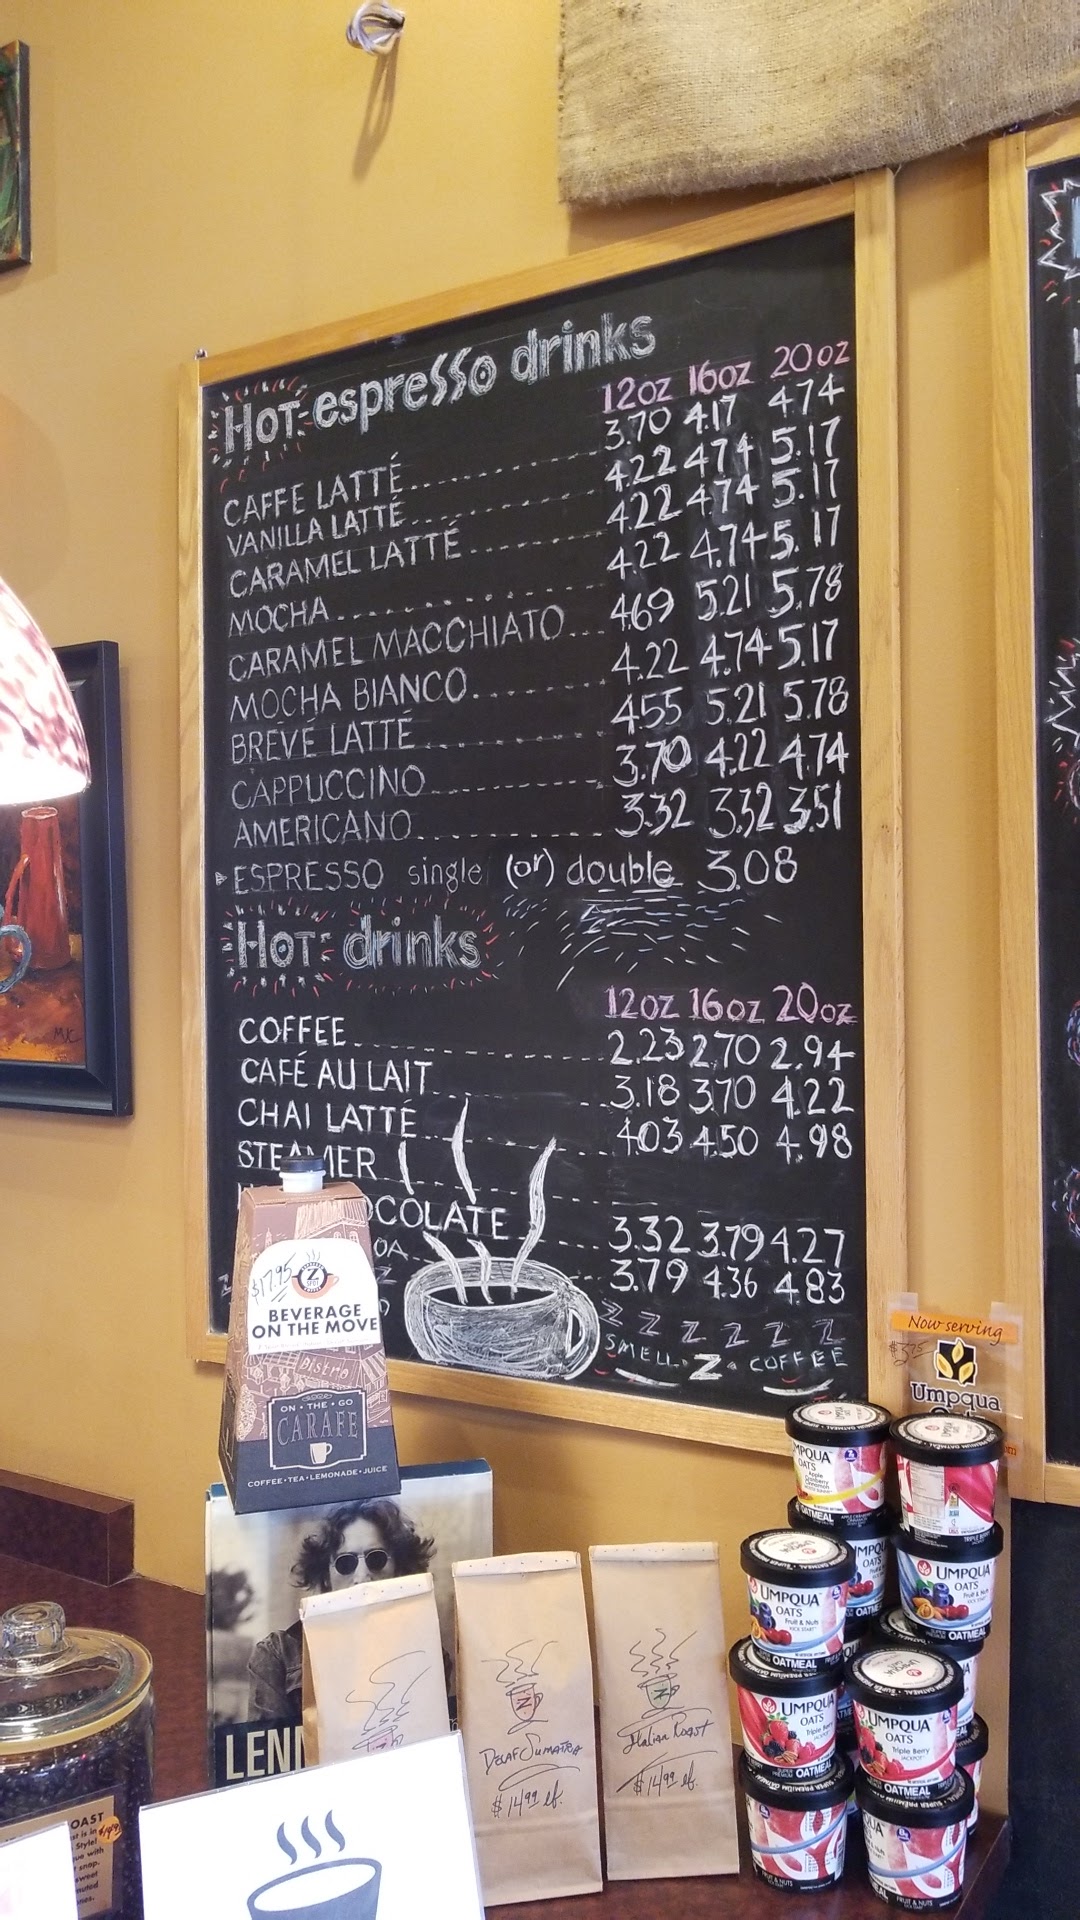 Hot espresso drinks
12oz 16oz 20oz
CAFFE LATTÉ 3.70 4.17 4.74
VANILLA LATTÉ 4.22 4.74 5.17
CARAMEL LATTÉ 4.22 4.74 5.17
MOCHA 4.22 4.74 5.17
CARAMEL MACCHIATO 4.69 5.21 5.78
MOCHA BIANCO 4.22 4.74 5.17
BREVÉ LATTÉ 4.55 5.21 5.78
CAPPUCCINO 3.70 4.22 4.74
AMERICANO 3.32 3.32 3.51
ESPRESSO single (or) double 3.08
Hot drinks
12oz 16oz 20oz
COFFEE 2.23 2.70 2.94
CAFÉ AU LAIT 3.18 3.70 4.22
CHAI LATTÉ 4.03 4.50 4.98
STEAMER 3.32 3.79 4.27
OCOLATE 3.79 4.36 4.83
OA
Z Z Z Z Z Z
SMELL · Z · COFFEE
$17.95
Z
SPOT
BEVERAGE
ON THE MOVE
Bistro
ON · THE · GO
CARAFE
COFFEE · TEA · LEMONADE · JUICE
Now serving
$3.75
Umpqua
UMPQUA
OATS
Apple
Cranberry
Cinnamon
OATMEAL
UMPQUA
OATS
Fruit & Nuts
KICK START
OATMEAL
UMPQUA
OATS
Fruit & Nuts
KICK START
OATMEAL
UMPQUA
OATS
Triple Berry
OATMEAL
UMPQUA
OATS
Triple Berry
JACKPOT
OATMEAL
FRUIT & NUTS
FRUIT & NUTS
LENN
Z
Decaf Sumatra
$14.99 lb.
Z
Italian Roast
$14.99 lb.
OAST
st is in
Style!
ue with
snap.
sweet
muted
nes.
MK